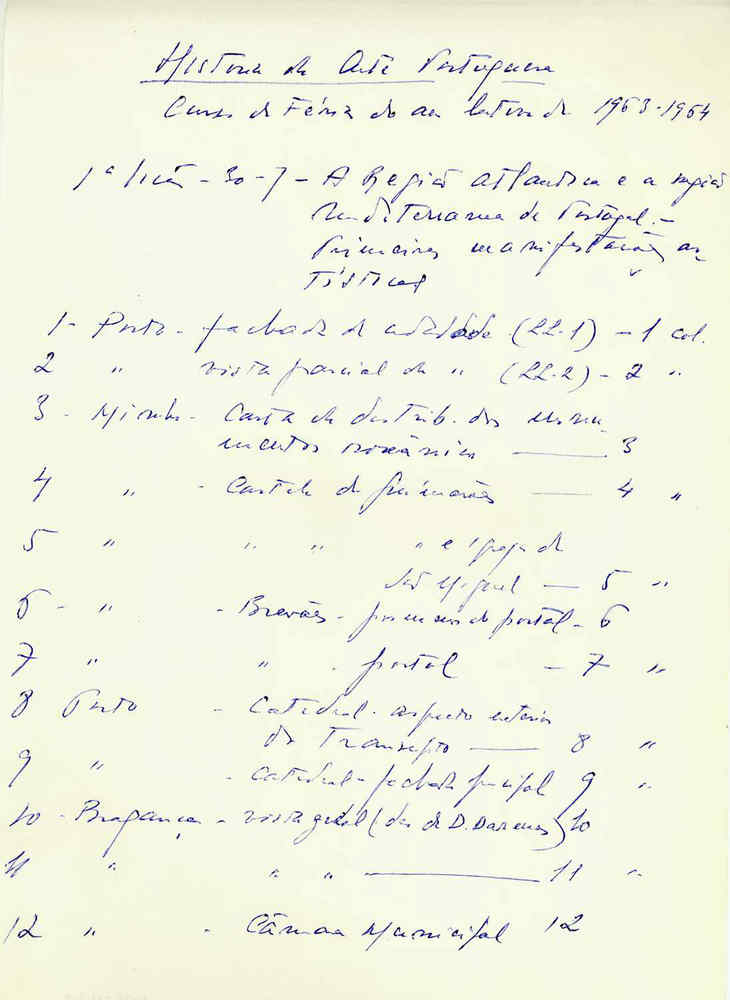 História da Arte Portuguesa
Curso de Férias do ano lectivo de 1963-1964
1ª lição - 30-7 - A Região atlantica e a região
mediterranea de Portugal. -
Primeiras manifestações ar-
tísticas
1 - Porto - fachada da cidade (22.1) - 1 col.
2 " vista parcial da " (22.2) - 2 "
3 - Minho - Carta de distrib. dos monu-
mentos românicos — 3
4 " - Castelo de Guimarães — 4 "
5 " " " " e igreja de
São Miguel — 5 "
6 - " - Bravães - pormenor do portal - 6
7 " " - portal - 7 "
8 Porto - Catedral - aspecto exterior
do Transepto — 8 "
9 " - Catedral - fachada principal 9 "
10 - Bragança - vista geral ( de D. ) 10
11 " " " — 11 "
12 " - Câmara Municipal 12